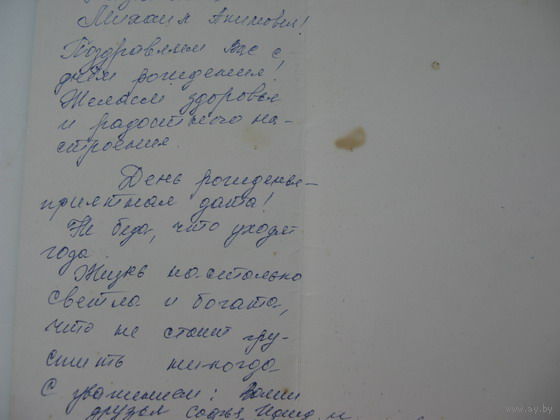 Михаил Акимович!
Поздравляем Вас с
днём рождения!
Желаем здоровья
и радостного на-
строения.
День рожденье -
приятная дата!
Не беда, что уходят
года.
Жизнь настолько
светла и богата,
что не стоит гру-
стить никогда
С уважением: Ваши
друзья
www.ay.by